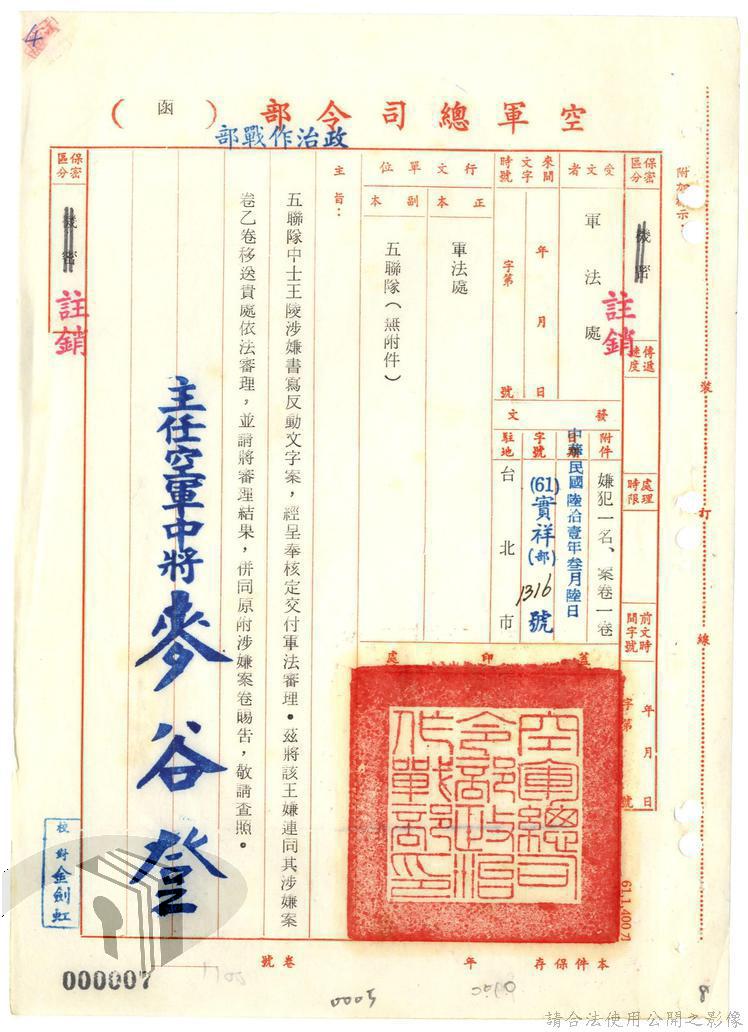 4
空軍總司令部（函）
政治作戰部
附加標示
保密區分
機密
註銷
傳遞速度
處理時限
前文時間字號
年月日
字第
號
受文者
軍法處
來文
時間 字號
年月日
字第
號
發文
附件
嫌犯一名、案卷一卷
日期
中華民國陸拾壹年叁月陸日
字號
(61)實祥(部)1316號
駐地
台北市
蓋印處
行文單位
正本
軍法處
副本
五聯隊（無附件）
主旨：
五聯隊中士王陵涉嫌書寫反動文字案，經呈奉核定交付軍法審理。茲將該王嫌連同其涉嫌案
卷乙卷移送貴處依法審理，並請將審理結果，併同原附涉嫌案卷賜告，敬請查照。
主任空軍中將麥谷登
保密區分
機密
註銷
空軍總司令部政治作戰部印
裝訂線
校對金劍虹
本件保存年
卷號
000007
0005
8
請合法使用公開之影像